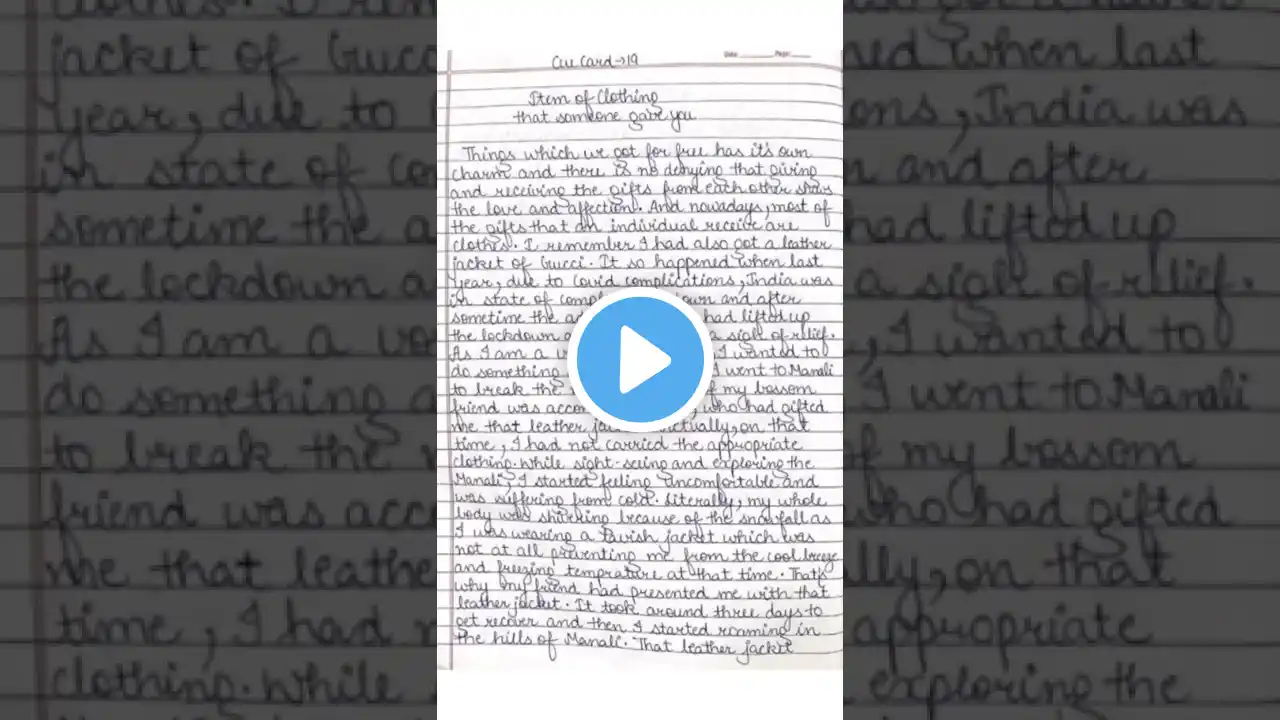 Cue Card→19
Date: Page:
Item of Clothing
that someone gave you
Things which we got for free has it's own
charm and there is no denying that giving
and receiving the gifts from each other shows
the love and affection. And nowadays, most of
the gifts that an individual receive are
clothes. I remember I had also got a leather
jacket of Gucci. It so happened when last
year, due to covid complications, India was
in state of and after
sometime the had lifted up
the lockdown a sigh of relief.
As I am a I wanted to
do something I went to Manali
to break the of my bossom
friend was who had gifted
me that leather on that
time, I had not carried the appropriate
clothing. While sight-seeing and exploring the
Manali, I started feling uncomfortable and
was suffering from cold. Literally, my whole
body was shivring because of the snowfall as
I was wearing a jacket which was
not at all preventing me from the cool breeze
and freezing temprature at that time. That's
why my friend had presented me with that
leather jacket. It took around three days to
get recover and then I started roaming in
the hills of Manali. That leather jacket